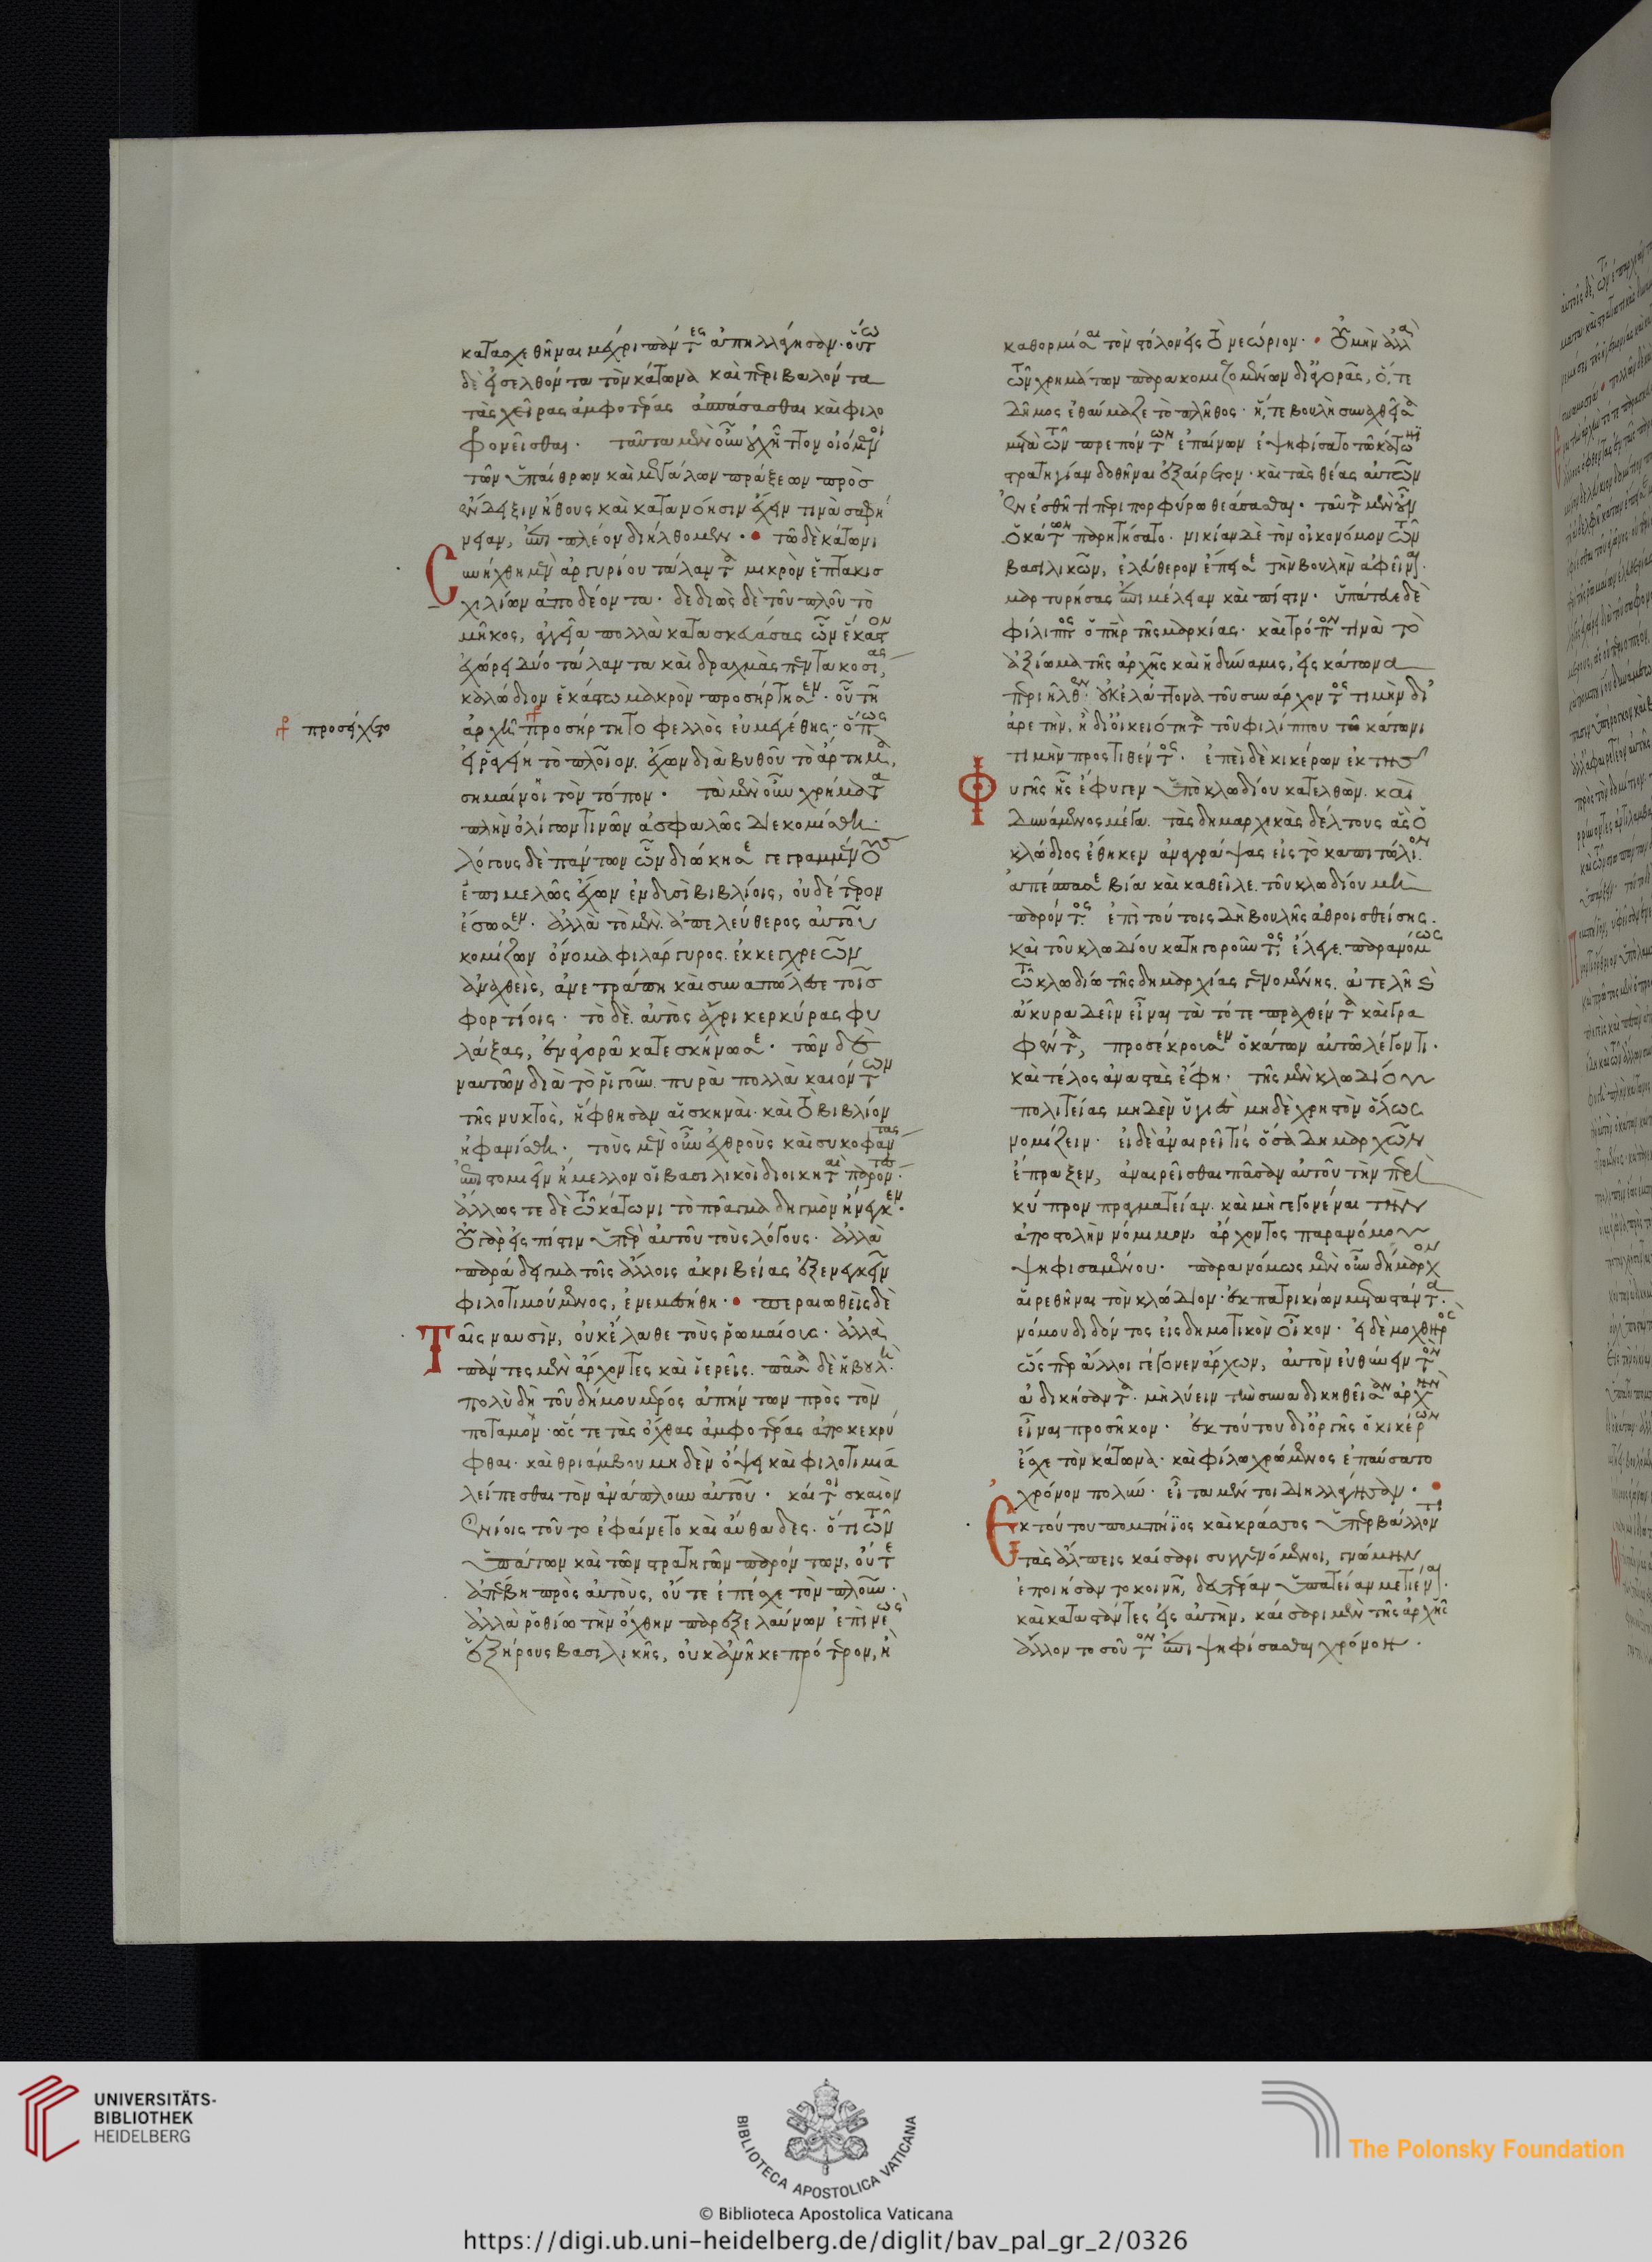 κατασχεθῆναι μέχρι πάντες ἀπηλλάγησαν· οὕτω
δὲ εἰσελθόντα τὸν κάτωνα καὶ περιβαλόντα
τὰς χεῖρας ἀμφοτέρας ἀσπάσασθαι καὶ φιλο
φρονεῖσθαι. ταῦτα μὲν οὖν οὐχ ἧττον οἰόμενοι
τῶν ὑπαίθρων καὶ μεγάλων πράξεων πρὸσ
ἔνδειξιν ἤθους καὶ κατανόησιν ἔχειν τινὰ σαφή
νειαν, ἐπὶ πλέον διήλθομεν. τῶ δὲ κάτωνι
Συνήχθη μὲν ἀργυρίου τάλαντα μικρὸν ἑπτακισ
χιλίων ἀποδέοντα· δεδιὼς δὲ τοῦ πλοῦ τὸ
μῆκος, ἀγγεῖα πολλὰ κατασκευάσας ὧν ἕκαστον
ἐχώρει δύο τάλαντα καὶ δραχμὰς πεντακοσίας,
καλώδιον ἑκάστω μακρὸν προσήρτησεν· οὗ τῆ
ἀρχῆ προσήρτητο φελλὸς εὐμεγέθης· ὅπως
εἰ ῥαγείη τὸ πλοῖον. ἔχων διὰ βυθοῦ τὸ ἄρτημα,
σημαίνοι τὸν τόπον. τὰ μὲν οὖν χρήματα
πλὴν ὀλίγων τινῶν ἀσφαλῶς διεκομίσθη.
λόγους δὲ πάντων ὧν διώκησε γεγραμμένους
ἐπιμελῶς ἔχων ἐν δυσὶ βιβλίοις, οὐδέτερον
ἔσωσεν. ἀλλὰ τὸ μὲν. ἀπελεύθερος αὐτοῦ
κομίζων ὄνομα φιλάργυρος. ἐκ κεγχρεῶν
ἀναχθεὶς, ἀνετράπη καὶ συναπώλεσε τοῖσ
φορτίοις· τὸ δὲ. αὐτὸς ἄχρι κερκύρας φυ
λάξας, ἐν ἀγορᾶ κατεσκήνωσε. τῶν δὲ
ναυτῶν διὰ τὸ ῥιγοῦν. πυρὰ πολλὰ καιόντων
τῆς νυκτὸς, ἥφθησαν αἱ σκηναὶ· καὶ τὸ βιβλίον
ἠφανίσθη. τοὺς μὲν οὖν ἐχθροὺς καὶ συκοφάντας
ἐπιστομιεῖν ἤμελλον οἱ βασιλικοὶ διοικηταὶ παρόντες·
ἄλλως τε δὲ τῶ κάτωνι τὸ πρᾶγμα δηγμὸν ἤνεγκεν.
οὐ γὰρ εἰς πίστιν ὑπὲρ αὐτοῦ τοὺς λόγους· ἀλλὰ
παράδειγμα τοῖς ἄλλοις ἀκριβείας ἐξενεγκεῖν
φιλοτιμούμενος, ἐνεμεσήθη. περαιωθεὶς δὲ
Ταῖς ναυσὶν, οὐκ ἔλαθε τοὺς ῥωμαίους· ἀλλὰ
πάντες μὲν ἄρχοντες καὶ ἱερεῖς. πᾶσα δὲ ἡ βουλὴ·
πολὺ δὴ τοῦ δήμου μέρος ἀπήντων πρὸς τὸν
ποταμὸν· ὥστε τὰς ὄχθας ἀμφοτέρας ἀποκεκρύ
φθαι· καὶ θριάμβου μηδὲν ὄψει καὶ φιλοτιμία
λείπεσθαι τὸν ἀνάπλουν αὐτοῦ. καίτοι σκαιὸν
ἐνίοις τοῦτο ἐφαίνετο καὶ αὔθαδες. ὅτι τῶν
ὑπάτων καὶ τῶν στρατηγῶν παρόντων, οὔτε
ἀπέβη πρὸς αὐτοὺς, οὔτε ἐπέσχε τὸν πλοῦν·
ἀλλὰ ῥοθίω τὴν ὄχθην παρεξελαύνων ἐπὶ νεὼς
ἑξήρους βασιλικῆς, οὐκ ἀνῆκε πρότερον, ἢ
προσείχετο
καθορμίσαι τὸν στόλον εἰς τὸ νεώριον. οὐ μὴν ἀλλὰ
τῶν χρημάτων παρακομιζομένων δι' ἀγορᾶς, ὅ, τε
δῆμος ἐθαύμαζε τὸ πλῆθος· ἥ, τε βουλὴ συναχθεῖσα
μετὰ τῶν πρεπόντων ἐπαίνων ἐψηφίσατο τῶ κάτωνι
στρατηγίαν δοθῆναι ἐξαίρετον· καὶ τὰς θέας αὐτὸν
ἐν ἐσθῆτι περιπορφύρω θεάσασθαι. ταῦτα μὲν οὖν
ὁ κάτων παρητήσατο. νικίαν δὲ τὸν οἰκονόμον τῶν
βασιλικῶν, ἐλεύθερον ἔπεισε τὴν βουλὴν ἀφεῖναι.
μαρτυρήσας ἐπιμέλειαν καὶ πίστιν. ὑπάτευε δὲ
φίλιππος ὁ πατὴρ τῆς μαρκίας· καὶ τρόπον τινὰ τὸ
ἀξίωμα τῆς ἀρχῆς καὶ ἡ δύναμις, εἰς κάτωνα
περιῆλθεν. οὐκ ἐλάττονα τοῦ συνάρχοντος τιμὴν δι'
ἀρετὴν, ἢ δι' οἰκειότητα τοῦ φιλίππου τῶ κάτωνι
τιμὴν προστιθέντος. ἐπεὶ δὲ κικέρων ἐκ τῆσ
Φυγῆς ἧς ἔφυγεν ὑπὸ κλωδίου κατελθὼν. καὶ
δυνάμενος μέγα. τὰς δημαρχικὰς δέλτους ἃς ὁ
κλώδιος ἔθηκεν ἀναγράψας εἰς τὸ καπιτώλιον.
ἀπέσπασε βία καὶ καθεῖλε. τοῦ κλωδίου μὴ
παρόντος. ἐπὶ τούτοις δὲ βουλῆς ἀθροισθείσης.
καὶ τοῦ κλωδίου κατηγοροῦντος, ἔλεγε. παρανόμως
τῶ κλωδίω τῆς δημαρχίας γενομένης. ἀτελῆ καὶ
ἄκυρα δεῖν εἶναι τὰ τότε πραχθέντα καὶ γρα
φέντα, προσέκρουσεν ὁ κάτων αὐτῶ λέγοντι.
καὶ τέλος ἀναστὰς ἔφη· τῆς μὲν κλωδίου
πολιτείας μηδὲν ὑγιὲς μηδὲ χρηστὸν ὅλως
νομίζειν. εἰ δὲ ἀναιρεῖ τίς ὅσα δημαρχῶν
ἔπραξεν, ἀναιρεῖσθαι πᾶσαν αὐτοῦ τὴν περὶ
κύπρον πραγματείαν. καὶ μὴ γεγονέναι τὴν
ἀποστολὴν νόμιμον, ἄρχοντος παρανόμου
ψηφισαμένου. παρανόμως μὲν οὖν δήμαρχον
αἱρεθῆναι τὸν κλώδιον· ἐκ πατρικίων μεταστάντα.
νόμου διδόντος εἰς δημοτικὸν οἶκον· εἰ δὲ μοχθηρὸς
ὥσπερ ἄλλοι γέγονεν ἄρχων, αὐτὸν εὐθύνειν τὸν
ἀδικήσαντα. μὴ λύειν τὴν συναδικηθεῖσαν ἀρχὴν
εἶναι προσῆκον. ἐκ τούτου δι' ὀργῆς ὁ κικέρων
ἔσχε τὸν κάτωνα· καὶ φίλω χρώμενος ἐπαύσατο
χρόνον πολύν· εἶτα μέν τοι διηλλάγησαν.
Ἐκ τούτου πομπήϊος καὶ κράσσος ὑπερβάλλοντι
τὰς ἄλπεις καίσαρι συγγενόμενοι, γνώμην
ἐποιήσαντο κοινῆ, δευτέραν ὑπατείαν μετιέναι.
καὶ καταστάντες εἰς αὐτὴν, καίσαρι μὲν τῆς ἀρχῆς
ἄλλον τοσοῦτον ἐπιψηφίσασθαι χρόνον.
UNIVERSITÄTS-
BIBLIOTHEK
HEIDELBERG
BIBLIOTECA APOSTOLICA VATICANA
The Polonsky Foundation
© Biblioteca Apostolica Vaticana
https://digi.ub.uni-heidelberg.de/diglit/bav_pal_gr_2/0326